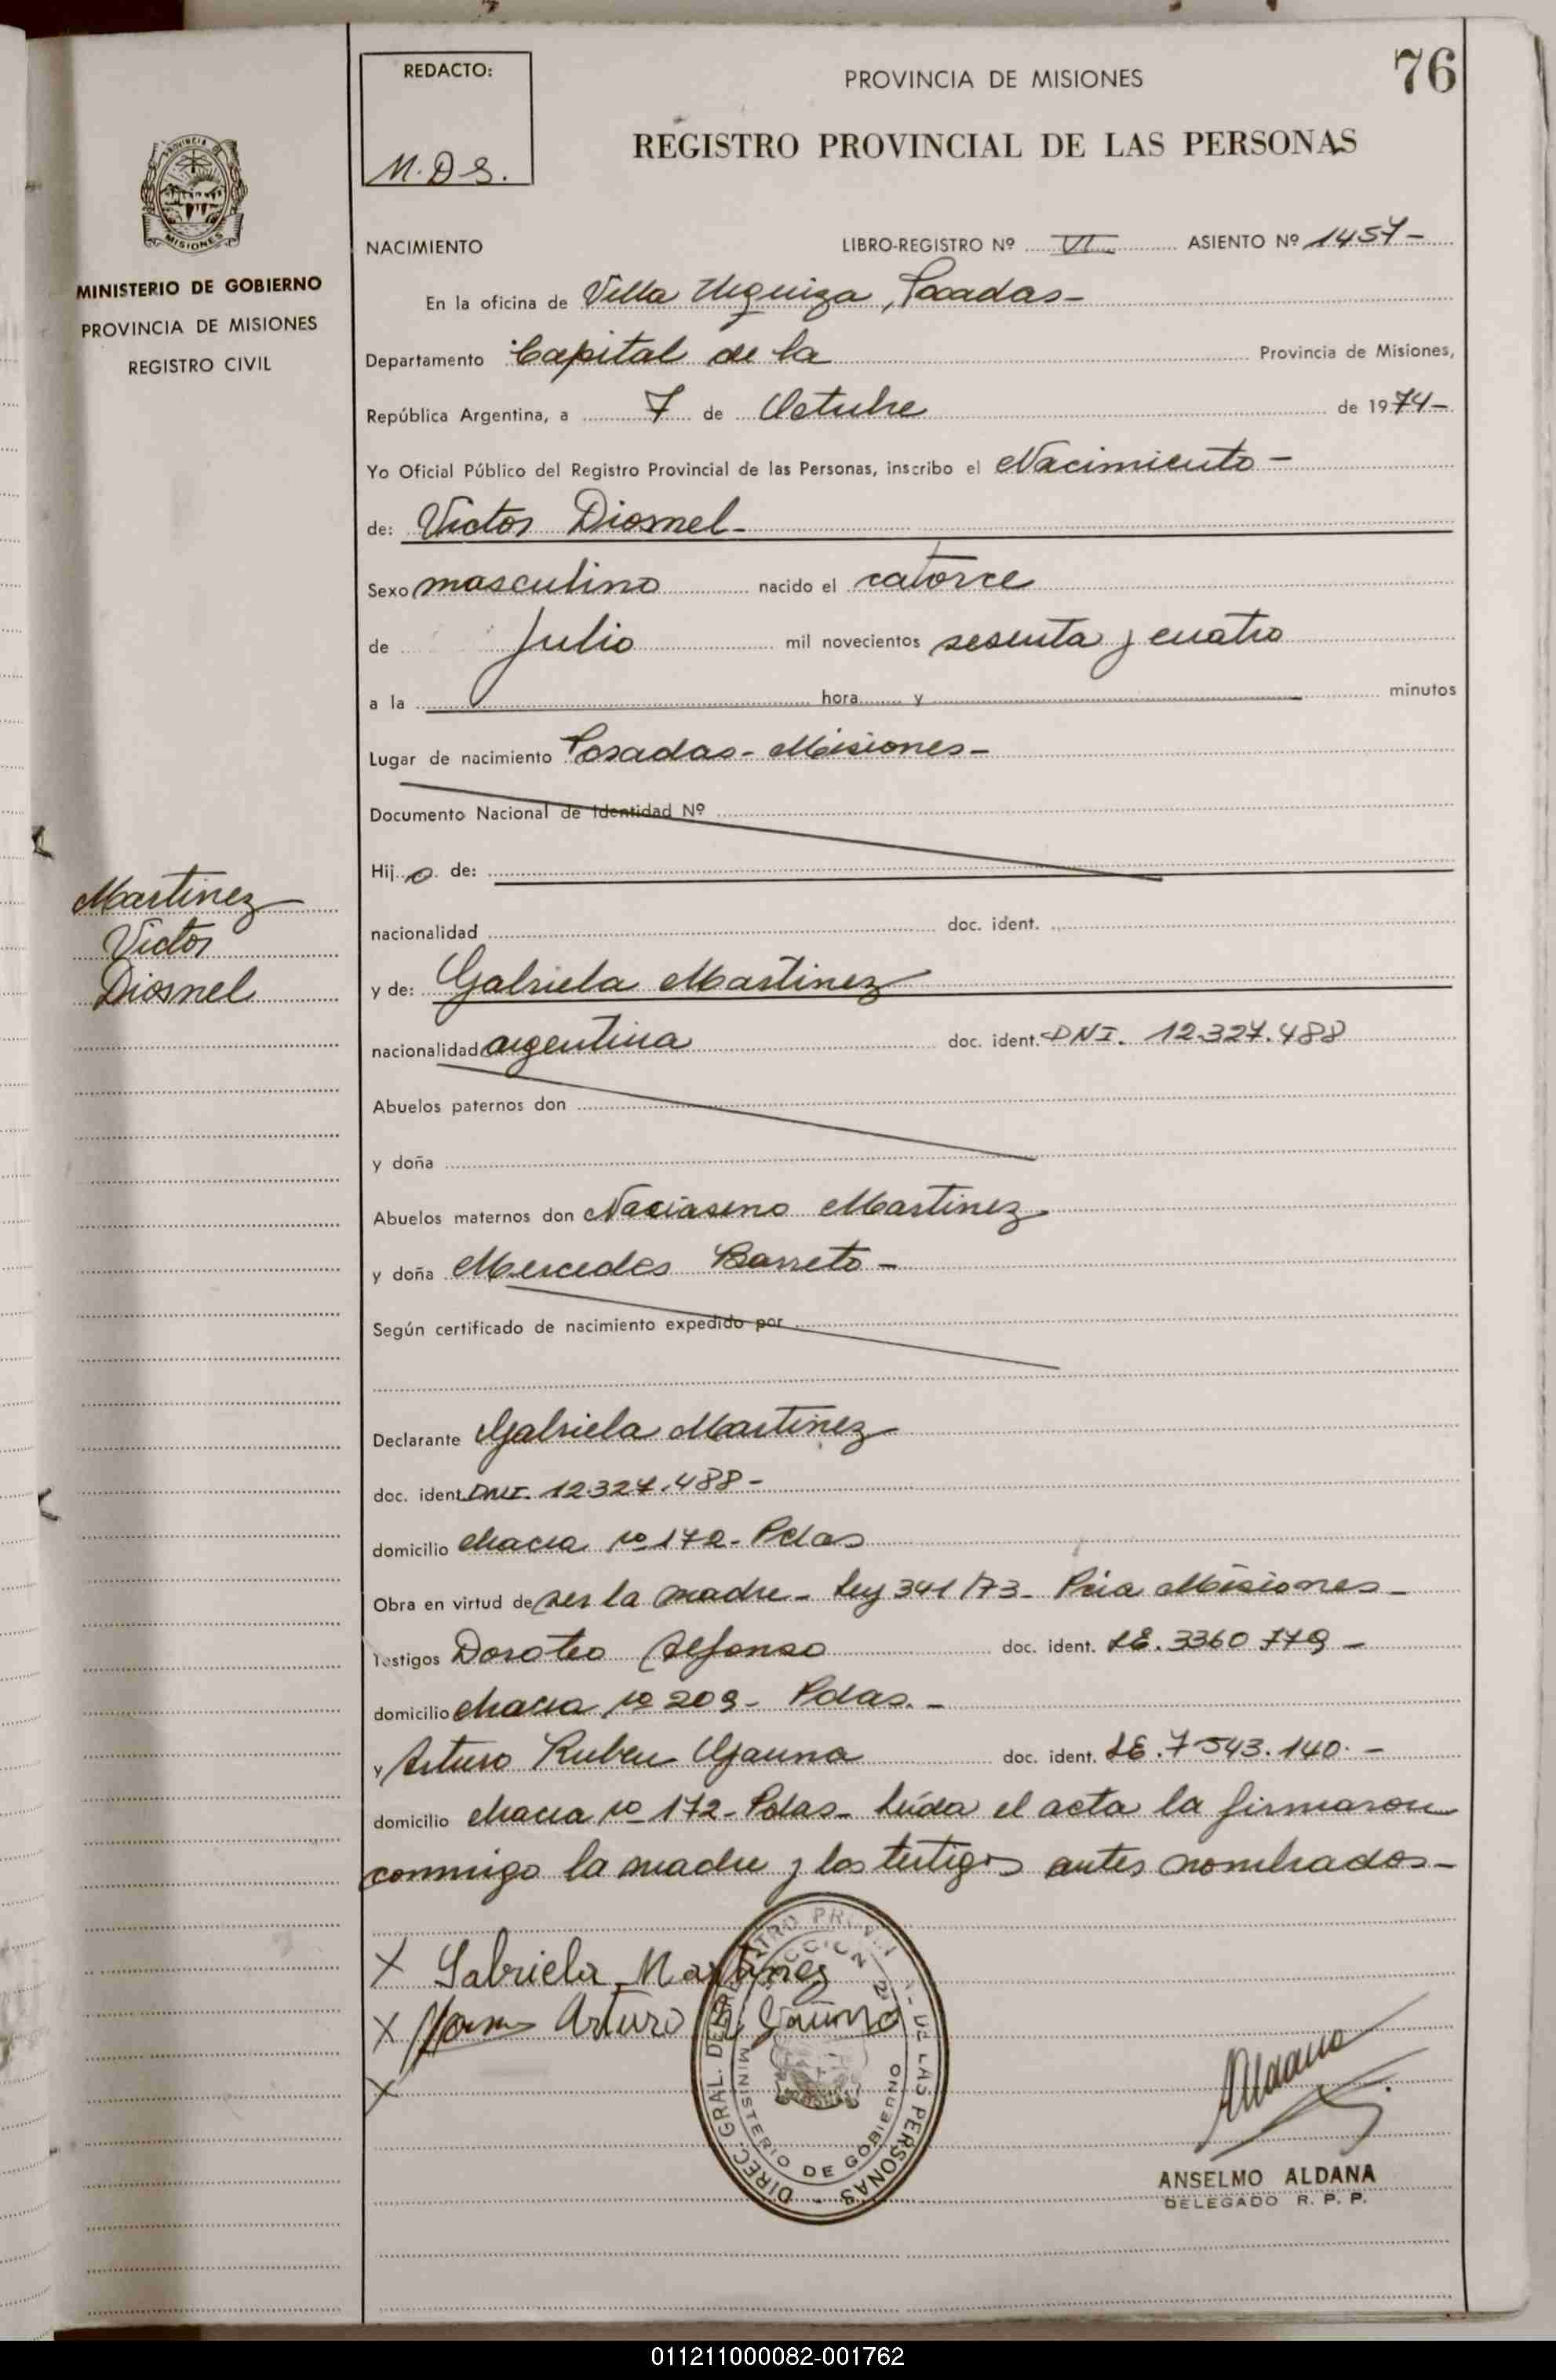 76
REDACTO:
M.D.S.
PROVINCIA DE MISIONES
REGISTRO PROVINCIAL DE LAS PERSONAS
MISIONES
MINISTERIO DE GOBIERNO
PROVINCIA DE MISIONES
REGISTRO CIVIL
NACIMIENTO LIBRO-REGISTRO Nº VI ASIENTO Nº 1457-
En la oficina de Villa Urquiza, Posadas-
Departamento Capital de la Provincia de Misiones,
República Argentina, a 7 de Octubre de 1974-
Yo Oficial Público del Registro Provincial de las Personas, inscribo el Nacimiento-
de: Victor Diosnel-
Sexo masculino nacido el catorce
de Julio mil novecientos sesenta y cuatro
a la hora y minutos
Lugar de nacimiento Posadas-Misiones-
Documento Nacional de Identidad Nº
Hijo de:
nacionalidad doc. ident.
Martinez
Victor
Diosnel
y de: Gabriela Martinez
nacionalidad argentina doc. ident. DNI. 12.327.488
Abuelos paternos don
y doña
Abuelos maternos don Martinez
y doña Mercedes Barreto-
Según certificado de nacimiento expedido por
Declarante Gabriela Martinez
doc. ident DNI. 12.327.488-
domicilio chacra nº 172-Pdas
Obra en virtud de ser la madre-Ley 341/73-Pcia Misiones-
Testigos Doroteo Alfonso doc. ident. LE. 3360.779-
domicilio chacra nº 209-Pdas.-
y Arturo Ruben Gauna doc. ident. LE. 7543.140.-
domicilio chacra nº 172-Pdas- Leída el acta la firmaron
conmigo la madre y los testigos antes nombrados-
X Gabriela Martinez
X Arturo R Gauna
X
DIREC. GRAL. DE LAS PERSONAS
MINISTERIO DE GOBIERNO
Aldana
ANSELMO ALDANA
DELEGADO R. P. P.
011211000082-001762